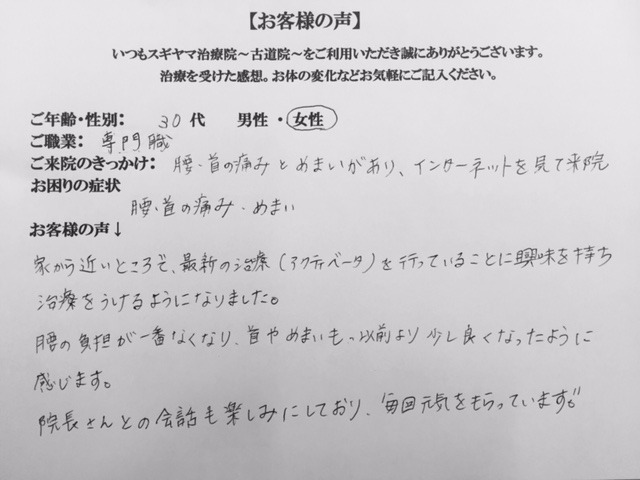 【お客様の声】
いつもスギヤマ治療院～古道院～をご利用いただき誠にありがとうございます。
治療を受けた感想。お体の変化などお気軽にご記入ください。
ご年齢・性別： 30 代 男性 ・ 女性
ご職業： 専門職
ご来院のきっかけ： 腰・首の痛みとめまいがあり、インターネットを見て来院
お困りの症状
腰・首の痛み・めまい
お客様の声↓
家から近いところで、最新の治療（アクティベータ）を行っていることに興味を持ち
治療をうけるようになりました。
腰の負担が一番なくなり、首やめまいも、以前より少し良くなったように
感じます。
院長さんとの会話も楽しみにしており、毎回元気をもらっています。